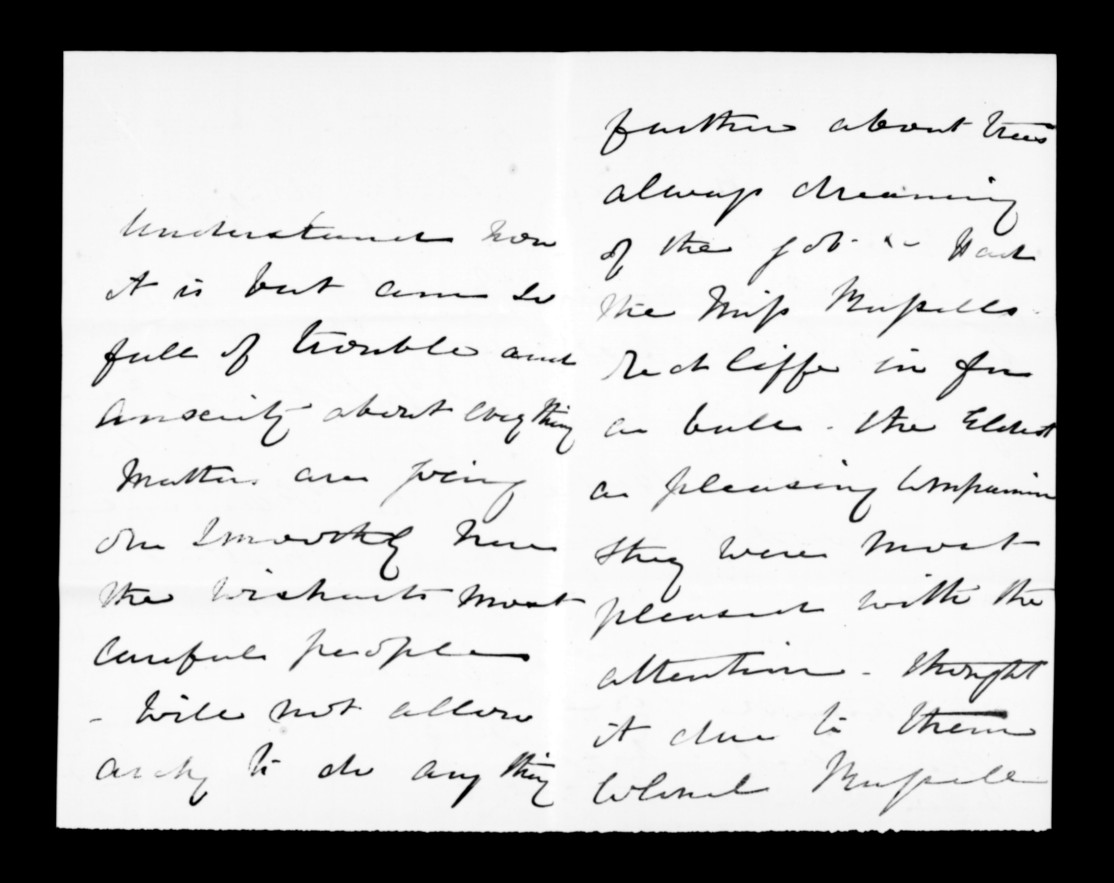 understand how
it is but am so
full of trouble and
anxiety about everything
Matters are going
on smoothly here
the Wisharts most
careful people
- Will not allow
archy to do anything
further about trees
always dreaming
of the job - Had
the Miss Russells
Redcliffe in for
a ball - the Eldest
a pleasing companion
they were most
pleased with the
attention - thought
it due to them
Colonel Russell